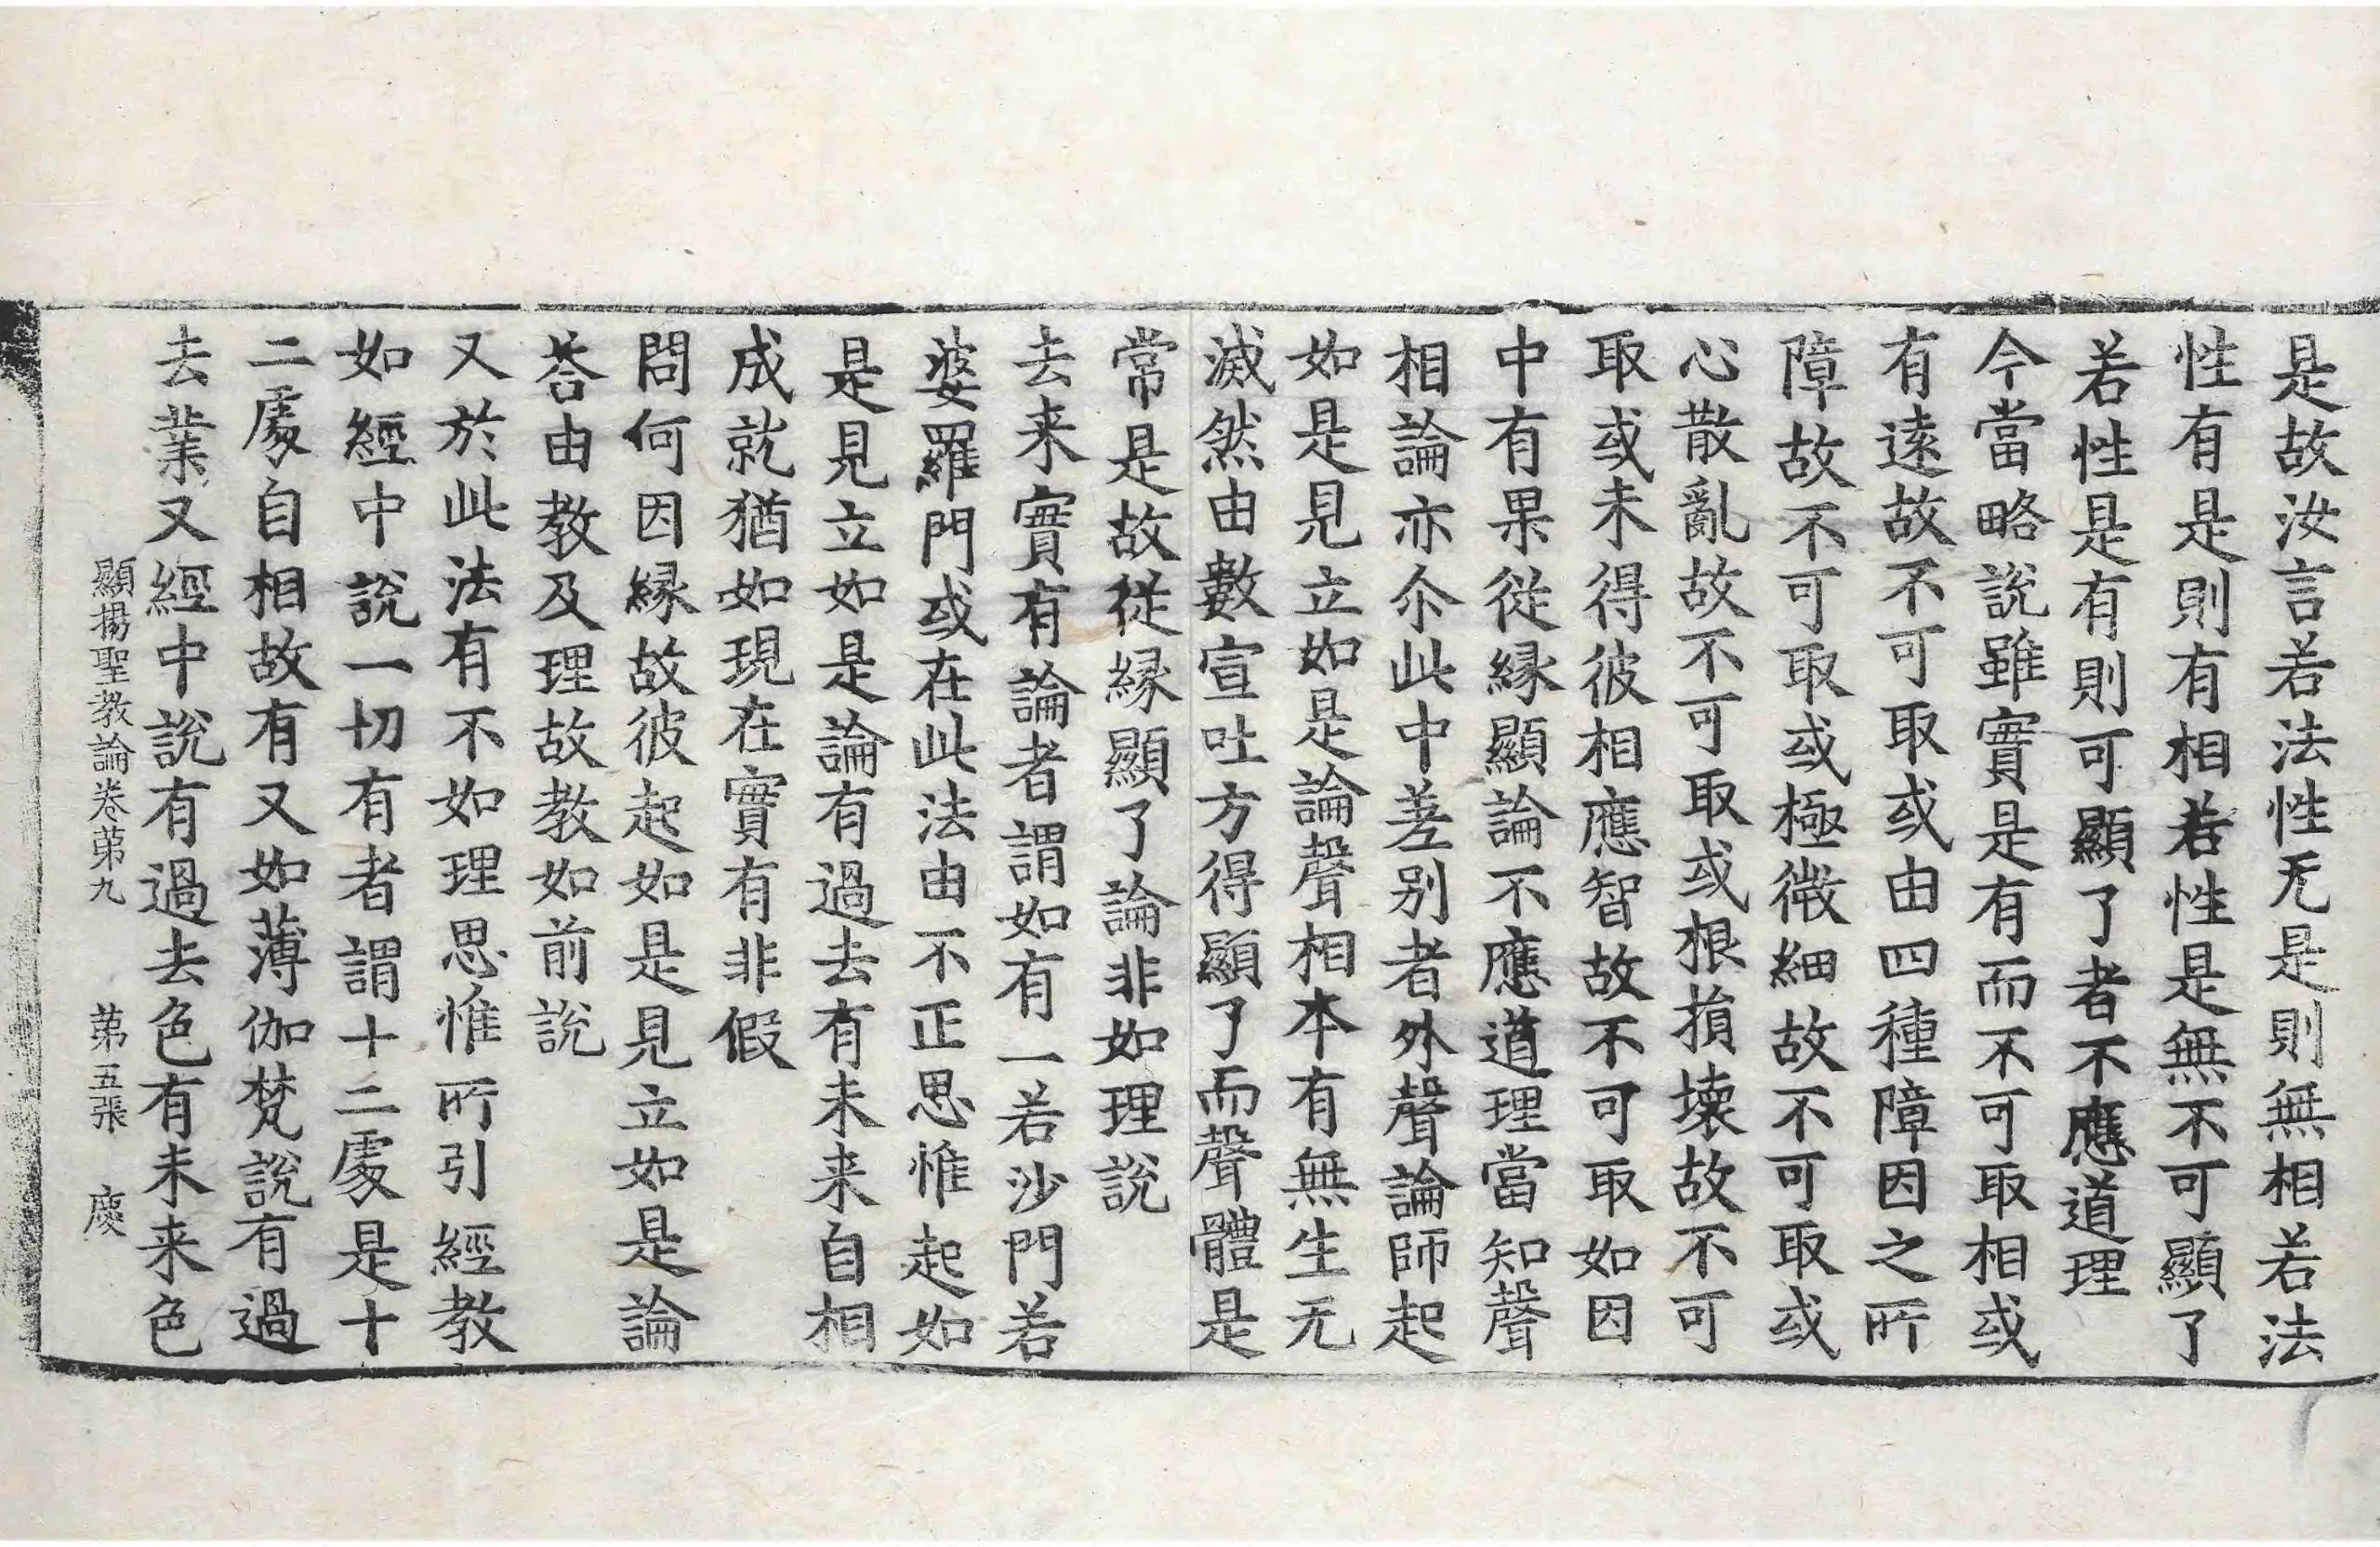 是故汝言若法性无是則無相若法
性有是則有相若性是無不可顯了
若性是有則可顯了者不應道理
今當略說雖實是有而不可取相或
有遠故不可取或由四種障因之所
障故不可取或極微細故不可取或
心散亂故不可取或根損壞故不可
取或未得彼相應智故不可取如因
中有果從緣顯論不應道理當知聲
相論亦尒此中差別者外聲論師起
如是見立如是論聲相本有無生无
滅然由數宣吐方得顯了而聲體是
常是故從緣顯了論非如理說
去来實有論者謂如有一若沙門若
婆羅門或在此法由不正思惟起如
是見立如是論有過去有未来自相
成就猶如現在實有非假
問何因緣故彼起如是見立如是論
荅由教及理故教如前說
又於此法有不如理思惟所引經教
如經中說一切有者謂十二處是十
二處自相故有又如薄伽梵說有過
去業又經中說有過去色有未来色
顯揚聖教論卷第九 第五張 慶